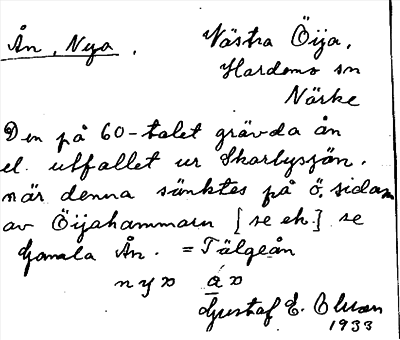 Ån, Nya. Västra Öija,
Hardemo sn
Närke
Den på 60-talet grävda ån
el. utfallet ur Skarbysjön,
när denna sänktes på ö. sidan
av Öijahammarn [se eh.] se
Gamla Ån. = Tälgeån
Gustaf E. Olsson
1933